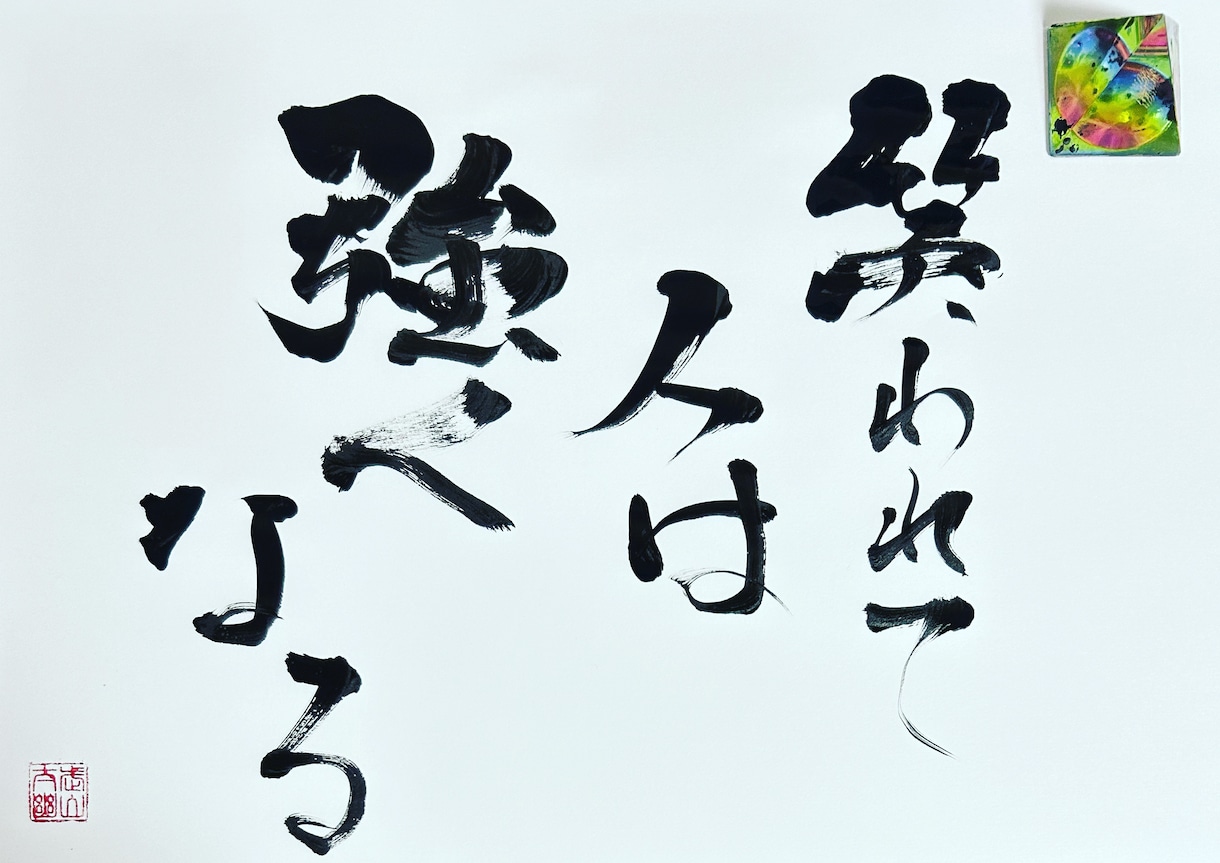 笑われて
人は
強く
なる